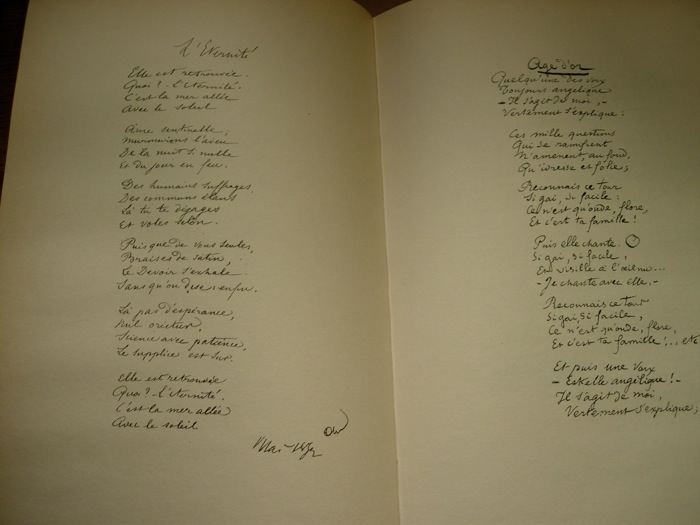 L'Eternité
Elle est retrouvée.
Quoi? - l'éternité.
C'est la mer allée
Avec le soleil
Ame sentinelle,
Murmurons l'aveu
De la nuit si nulle
Et du jour en feu.
Des humains suffrages,
Des communs élans
Là tu te dégages
Et voles selon.
Puisque de vous seules,
Braises de satin,
Le Devoir s'exhale
Sans qu'on dise: enfin.
Là pas d'espérance,
Nul orietur,
Science avec patience,
Le supplice est sûr.
Elle est retrouvée
Quoi? - l'éternité.
C'est la mer allée
Avec le soleil
Mai
Age d'or
Quelqu'une des voix
Toujours angélique
- Il s'agit de moi, -
Vertement s'explique:
Ces mille questions
Qui se ramifient
N'amènent, au fond,
Qu'ivresse et folie;
Reconnais ce tour
Si gai, si facile:
Ce n'est qu'onde, flore,
Et c'est ta famille!
Puis elle chante. O
Si gai, si facile,
Et visible à l'œil nu...
- Je chante avec elle. -
Reconnais ce tour
Si gai, si facile,
Ce n'est qu'onde, flore,
Et c'est ta famille!.. etc
Et puis une voix
- Est-elle angélique! -
Il s'agit de moi,
Vertement s'explique;